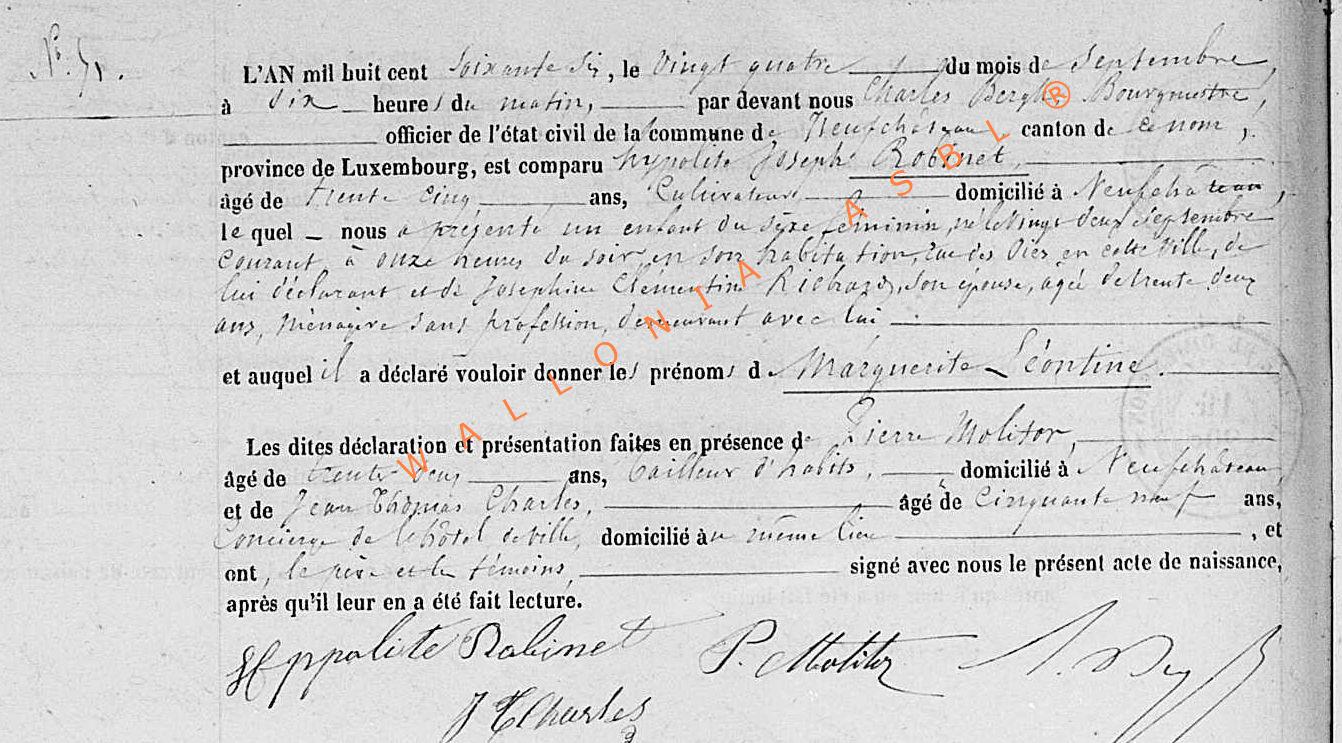 N.° 71.
L'AN mil huit cent soixante six, le vingt quatre du mois de septembre,
à six heures du matin, par devant nous Charles Bergh, Bourgmestre,
officier de l'état civil de la commune de Neufchâteau canton de ce nom,
province de Luxembourg, est comparu hypolite Joseph Robinet,
âgé de trente cinq ans, Cultivateur, domicilié à Neufchâteau,
le quel nous a présenté un enfant du sexe féminin, né le vingt deux septembre
courant à onze heures du soir, en son habitation, rue des en cette ville, de
lui déclarant et de Joséphine Clémentine Richard, son épouse, âgée de trente deux
ans, ménagère sans profession, demeurant avec lui
et auquel il a déclaré vouloir donner les prénoms de Marguerite Léontine.
Les dites déclaration et présentation faites en présence de Pierre Molitor,
âgé de trente deux ans, tailleur d'habits, domicilié à Neufchâteau
et de Jean Thomas Charles, âgé de Cinquante neuf ans,
Concierge de l'hôtel de ville, domicilié au même lieu, et
ont, le père et les témoins, signé avec nous le présent acte de naissance,
après qu'il leur en a été fait lecture.
Hyppolite Robinet P. Molitor
J T Charles
WALLONIA ASBL ®